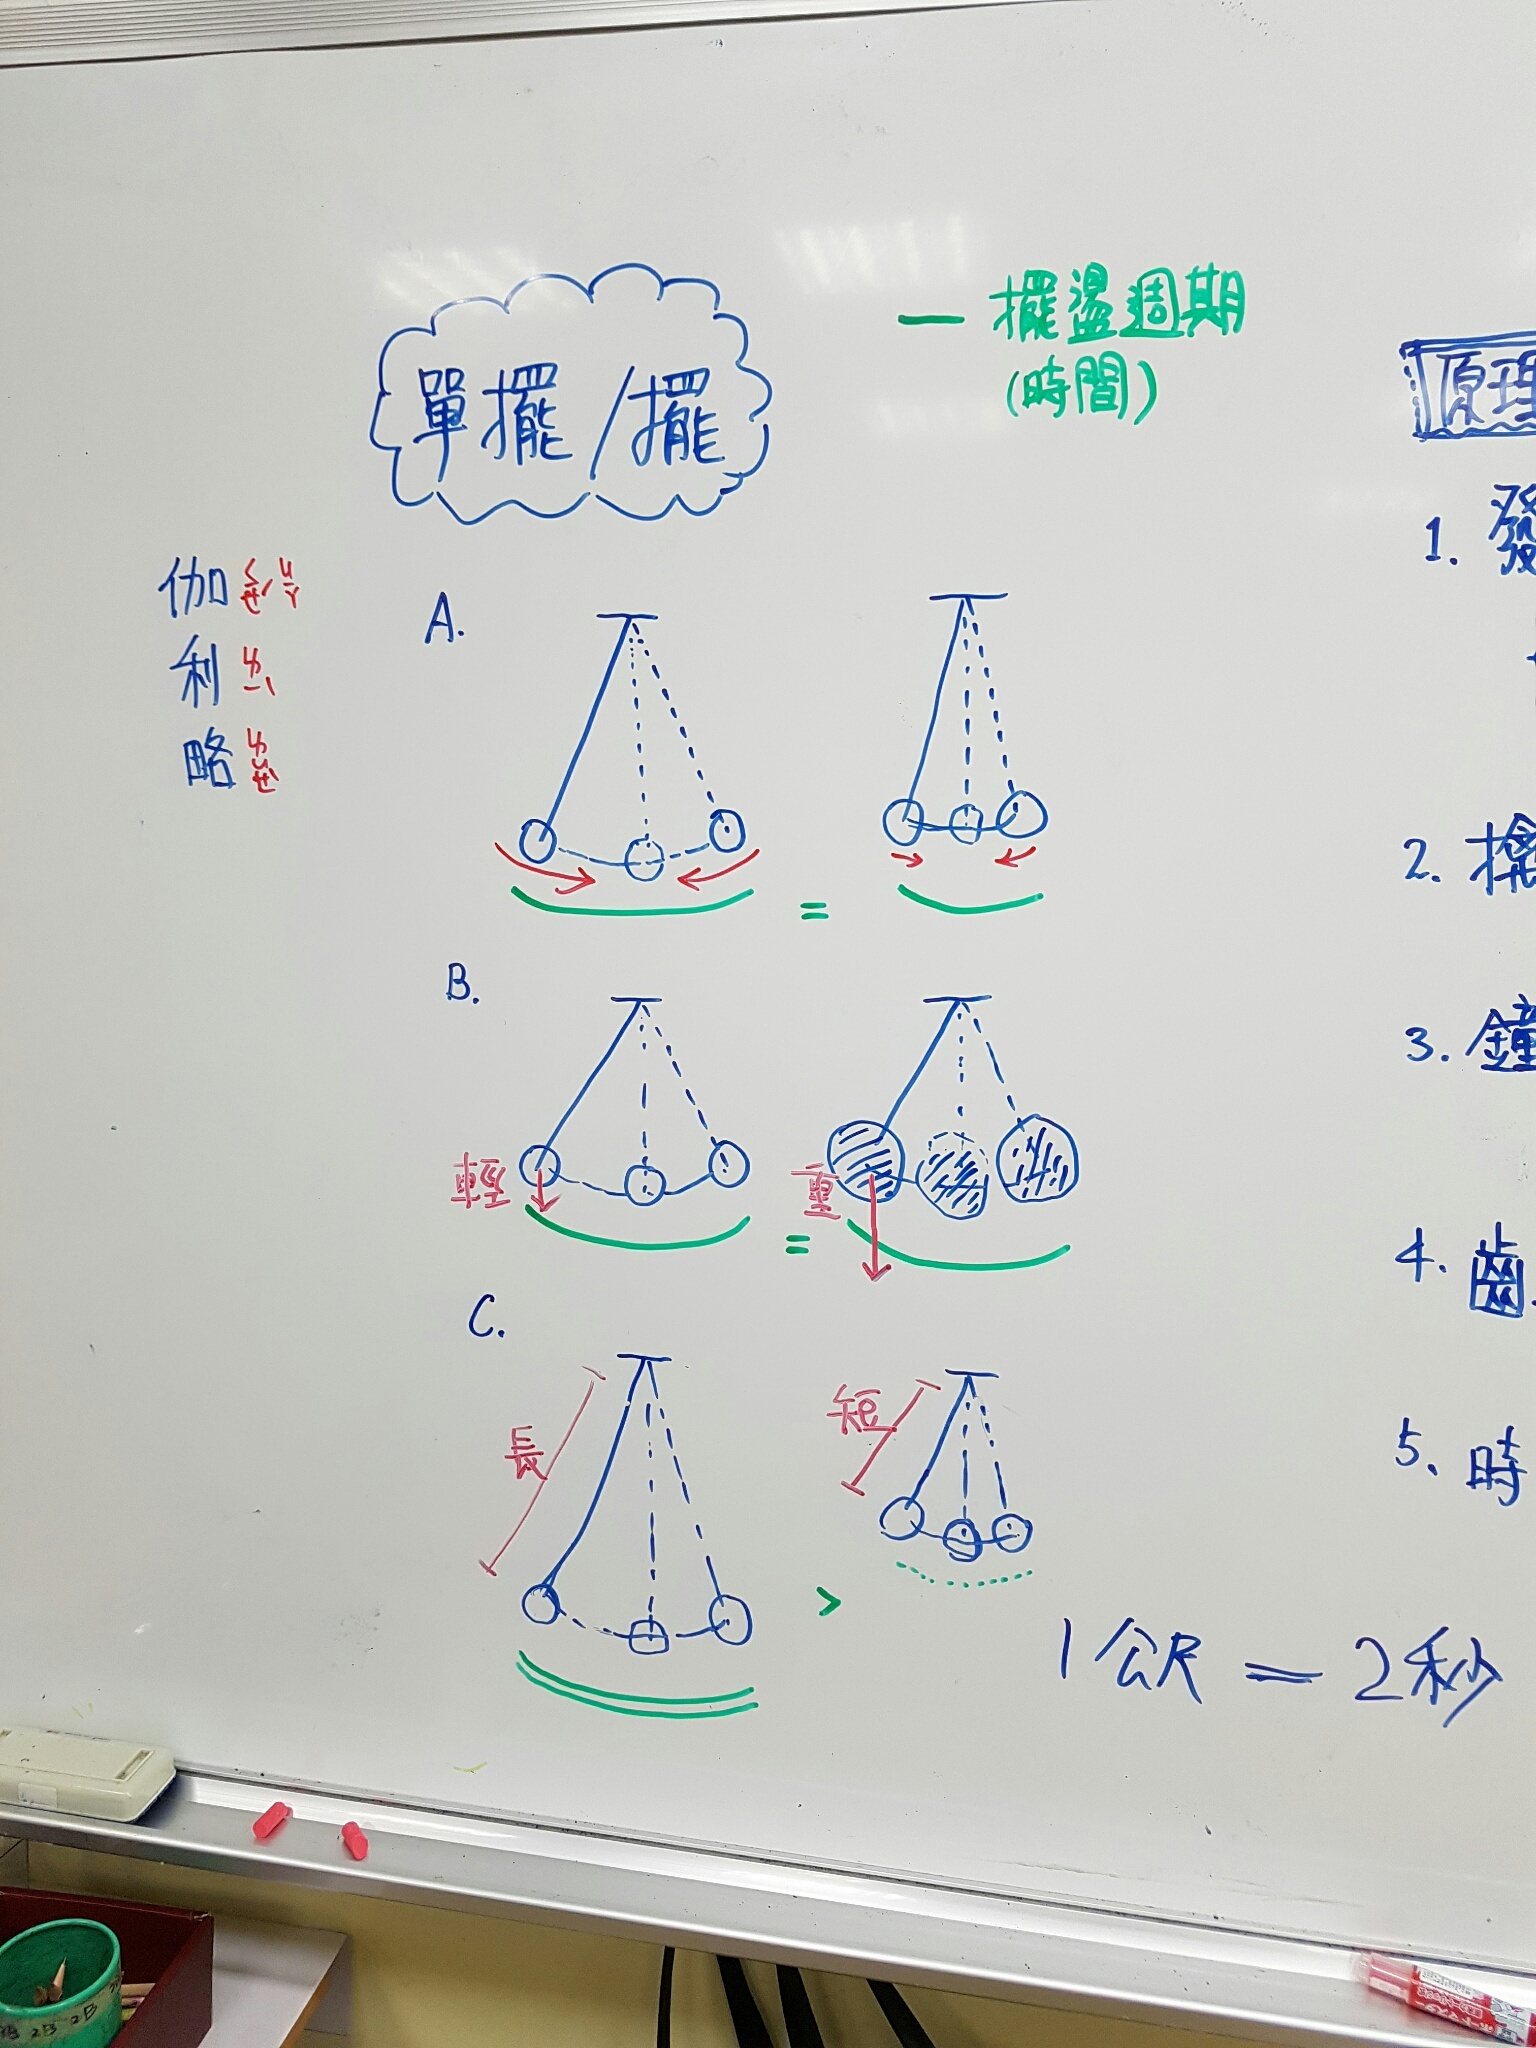 單擺/擺
— 擺盪週期
(時間)
伽 ㄑㄧㄝˊ ㄐㄚ
利 ㄌㄧˋ
略 ㄌㄩㄝˋ
A.
=
B.
輕
=
重
C.
長
>
短
1公尺 = 2秒
原理
1. 發
2. 擺
3. 鐘
4. 齒
5. 時
2B 2B